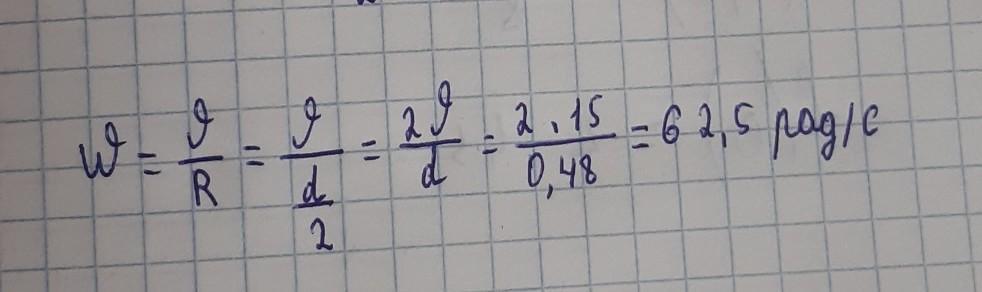 ω = ϑ/R = ϑ/(d/2) = 2ϑ/d = 2·15/0,48 = 62,5 рад/с